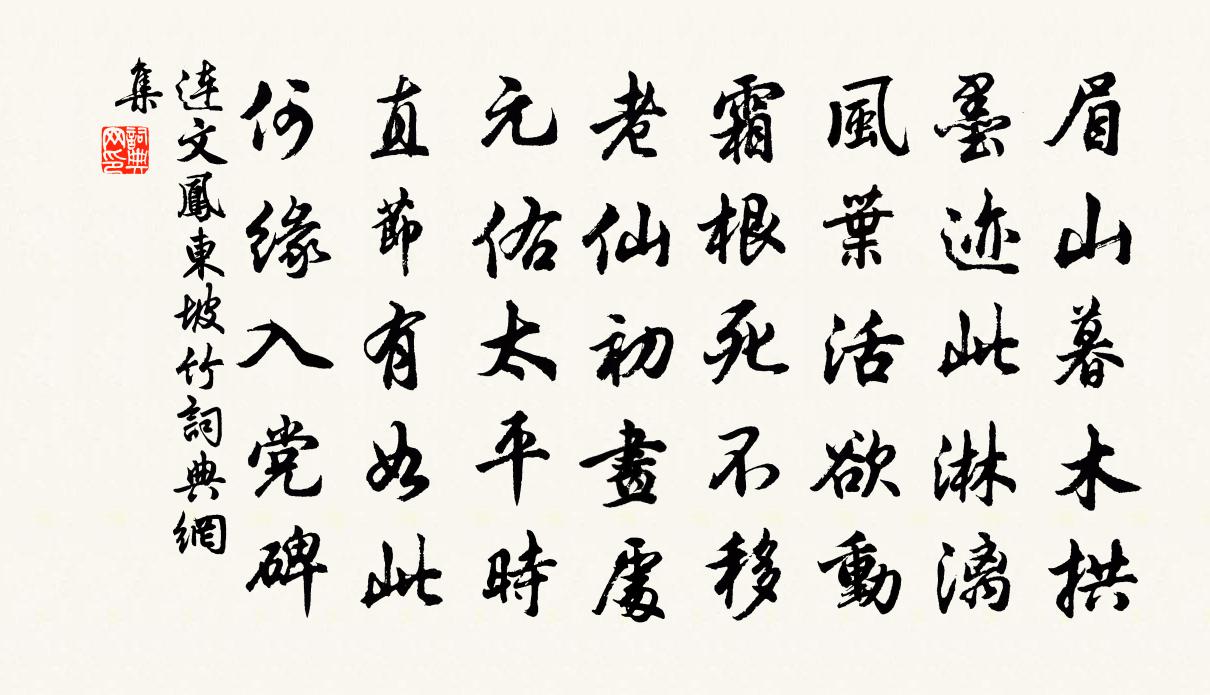 眉山暮木拱
墨迹此淋漓
風葉活欲動
霜根死不移
老仙初畫處
元佑太平時
直節有如此
何緣入党碑
連文鳳東坡竹詞典網
集
詞典
网印